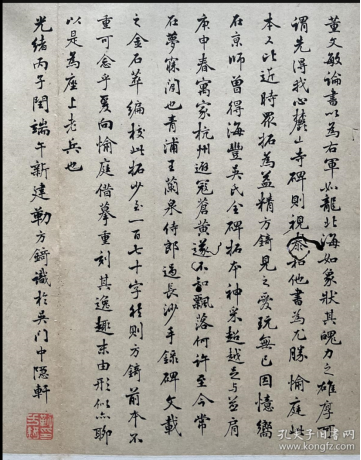 董文敏論書以為右軍如龍北海如象狀其魄力之雄厚
謂先得我心麓山寺碑則視泰和他書為尤勝愉庭此
本又比近時眾拓為益精方錡見之愛玩無已因憶嚮
在京師曾得海豐吳氏全碑拓本神采超越足與並肩
庚申春寓家杭州遜寇蒼黃遂不知飄落何許至今常
在夢寐間也青浦王蘭泉侍郎過長沙手錄碑文載
之金石萃編校此拓少至一百七十字然則方錡前本不
重可念乎爰向愉庭借摹重刻其逸趣末由形似亦聊
以是為座上老兵也
光緒丙子閏端午新建勒方錡識於吳門中隱軒